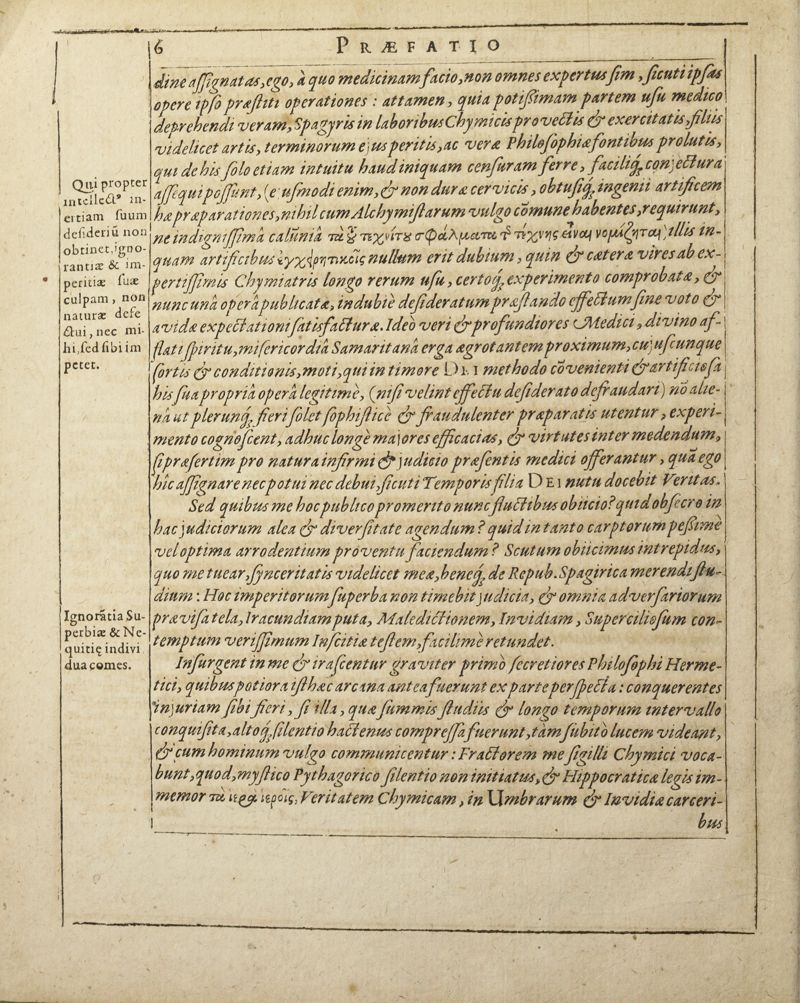 6
PRÆFATIO
dine assignatas, ego, à quo medicinam facio, non omnes expertus sim, sicuti ipsas
opere ipso præstiti operationes : attamen, quia potißimam partem usu medico
deprehendi veram, Spagyris in laboribus Chymicis provectis & exercitatis, filiis
videlicet artis, terminorum ejus peritis, ac veræ Philosophiæ fontibus prolutis,
qui de his solo etiam intuitu haud iniquam censuram ferre, faciliq; conjectura
assequi possunt, (ejusmodi enim, & non duræ cervicis, obtusiq; ingenii artificem
hæ præparationes, nihil cum Alchymistarum vulgo comune habentes, requirunt,
ne indignissimâ calūniâ τὰ τεχνίτȣ σφάλματα τ͂ τέχνης εἶναι νομίζηται) illis in-
quam artificibus ἐγχειρητικοῖς nullum erit dubium, quin & cætera vires ab ex-
pertissimis Chymiatris longo rerum usu, certoq; experimento comprobatæ, &
nunc unà operâ publicatæ, indubiè desideratum præstando effectum sine voto &
avidæ expectationi satisfacturæ. Ideò veri & profundiores Medici, divino af-
flati spiritu, misericordiâ Samaritanâ erga ægrotantem proximum, cujuscunque
sortis & conditionis, moti, qui in timore DEI methodo cōvenienti & artificiosa
his sua propriâ operâ legitimè, (nisi velint effectu desiderato defraudari) nō alie-
nâ ut plerunq; fieri solet sophisticè & fraudulenter præparatis utentur, experi-
mento cognoscent, adhuc longè majores efficacias, & virtutes inter medendum,
si præsertim pro natura infirmi & judicio præsentis medici offerantur, quā ego
hîc assignare nec potui nec debui, sicuti Temporis filia DEI nutu docebit Veritas.
Sed quibus me hoc publico promerito nunc fluctibus obiicio? quid obsecro in
hac judiciorum alea & diversitate agendum? quid in tanto carptorum peßimè
vel optima arrodentium proventu faciendum? Scutum obiicimus intrepidus,
quo me tuear, synceritatis videlicet meæ, beneq; de Repub. Spagirica merendi stu-
dium : Hoc imperitorum superba non timebit judicia, & omnia adversariorum
prævisa tela, Iracundiam puta, Maledictionem, Invidiam, Superciliosum con-
temptum verissimum Inscitiæ testem, facilimè retundet.
Insurgent in me & irascentur graviter primò secretiores Philosophi Herme-
tici, quibus potiora isthæc arcana antea fuerunt ex parte perspecta : conquerentes
injuriam sibi fieri, si illa, quæ summis studiis & longo temporum intervallo
conquisita, altoq; silentio hactenus compressa fuerunt, tàm subitò lucem videant,
& cum hominum vulgo communicentur : Fractorem me sigilli Chymici voca-
bunt, quod, mystico Pythagorico silentio non initiatus, & Hippocraticæ legis im-
memor τὰ ἱερὰ ἱεροῖς, Veritatem Chymicam, in Umbrarum & Invidiæ carceri-
bus
Qui propter
intellect⁹ in-
ertiam suum
desideriū non
obtinet, igno-
rantiæ & im-
peritiæ suæ
culpam, non
naturæ defe
ctui, nec mi-
hi, sed sibi im
petet.
Ignorātia Su-
perbiæ & Ne-
quitię indivi
dua comes.